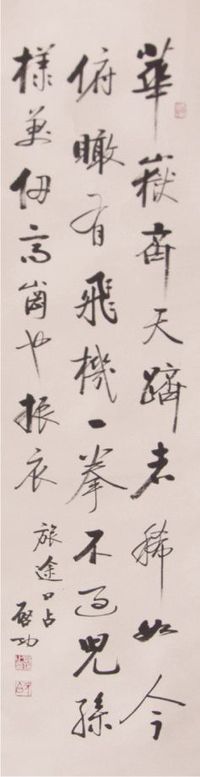 華嶽齊天躋者稀如今
俯瞰有飛機一拳不過兒孫
樣萬仞高崗也振衣
旅途口占
啟功